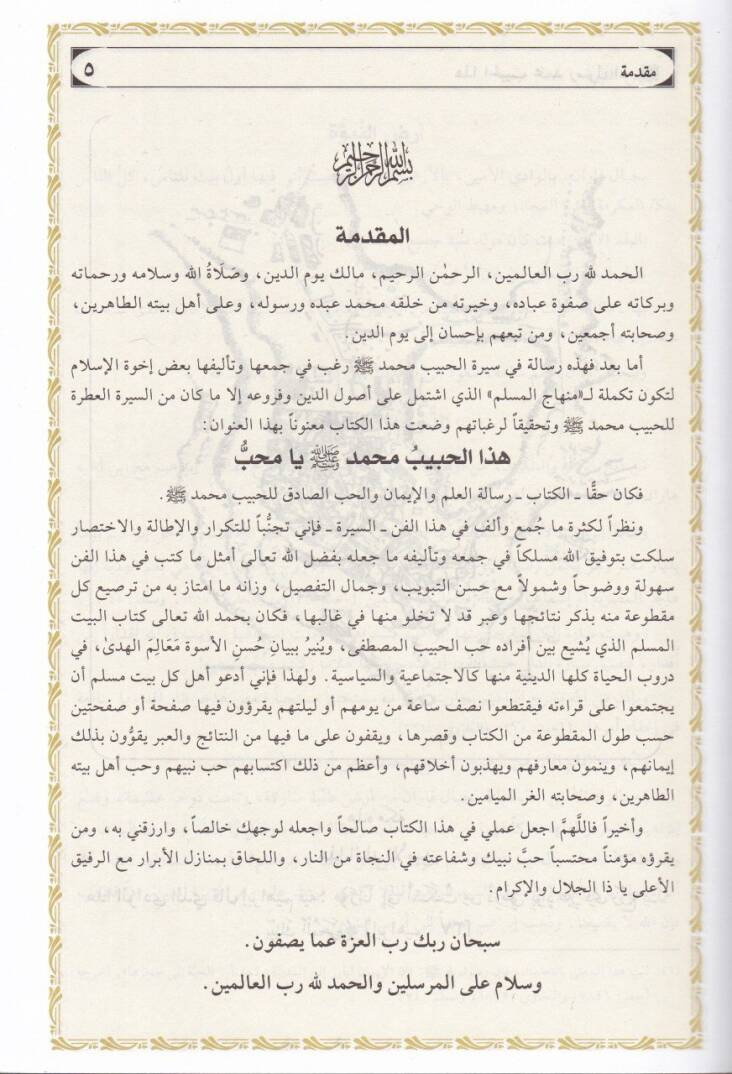 مقدمة ٥
بسم الله الرحمن الرحيم
المقدمة
الحمد لله رب العالمين، الرحمٰن الرحيم، مالك يوم الدين، وصَلَاةُ الله وسلامه ورحماته
وبركاته على صفوة عباده، وخيرته من خلقه محمد عبده ورسوله، وعلى أهل بيته الطاهرين،
وصحابته أجمعين، ومن تبعهم بإحسان إلى يوم الدين.
أما بعد فهذه رسالة في سيرة الحبيب محمد ﷺ رغب في جمعها وتأليفها بعض إخوة الإسلام
لتكون تكملة لـ«منهاج المسلم» الذي اشتمل على أصول الدين وفروعه إلا ما كان من السيرة العطرة
للحبيب محمد ﷺ وتحقيقاً لرغباتهم وضعت هذا الكتاب معنوناً بهذا العنوان:
هذا الحبيبُ محمد ﷺ يا محبُّ
فكان حقًّا ـ الكتاب ـ رسالة العلم والإيمان والحب الصادق للحبيب محمد ﷺ.
ونظراً لكثرة ما جُمع وألف في هذا الفن ـ السيرة ـ فإني تجنُّباً للتكرار والإطالة والاختصار
سلكت بتوفيق الله مسلكاً في جمعه وتأليفه ما جعله بفضل الله تعالى أمثل ما كتب في هذا الفن
سهولة ووضوحاً وشمولاً مع حسن التبويب، وجمال التفصيل، وزانه ما امتاز به من ترصيع كل
مقطوعة منه بذكر نتائجها وعبر قد لا تخلو منها في غالبها، فكان بحمد الله تعالى كتاب البيت
المسلم الذي يُشيع بين أفراده حب الحبيب المصطفى، ويُنيرُ ببيانِ حُسنِ الأسوة مَعَالِمَ الهدىٰ، في
دروب الحياة كلها الدينية منها كالاجتماعية والسياسية. ولهذا فإني أدعو أهل كل بيت مسلم أن
يجتمعوا على قراءته فيقتطعوا نصف ساعة من يومهم أو ليلتهم يقرؤون فيها صفحة أو صفحتين
حسب طول المقطوعة من الكتاب وقصرها، ويقفون على ما فيها من النتائج والعبر يقوُّون بذلك
إيمانهم، وينمون معارفهم ويهذبون أخلاقهم، وأعظم من ذلك اكتسابهم حب نبيهم وحب أهل بيته
الطاهرين، وصحابته الغر الميامين.
وأخيراً فاللَّهمَّ اجعل عملي في هذا الكتاب صالحاً واجعله لوجهك خالصاً، وارزقني به، ومن
يقرؤه مؤمناً محتسباً حبَّ نبيك وشفاعته في النجاة من النار، واللحاق بمنازل الأبرار مع الرفيق
الأعلى يا ذا الجلال والإكرام:
سبحان ربك رب العزة عما يصفون.
وسلام على المرسلين والحمد لله رب العالمين.